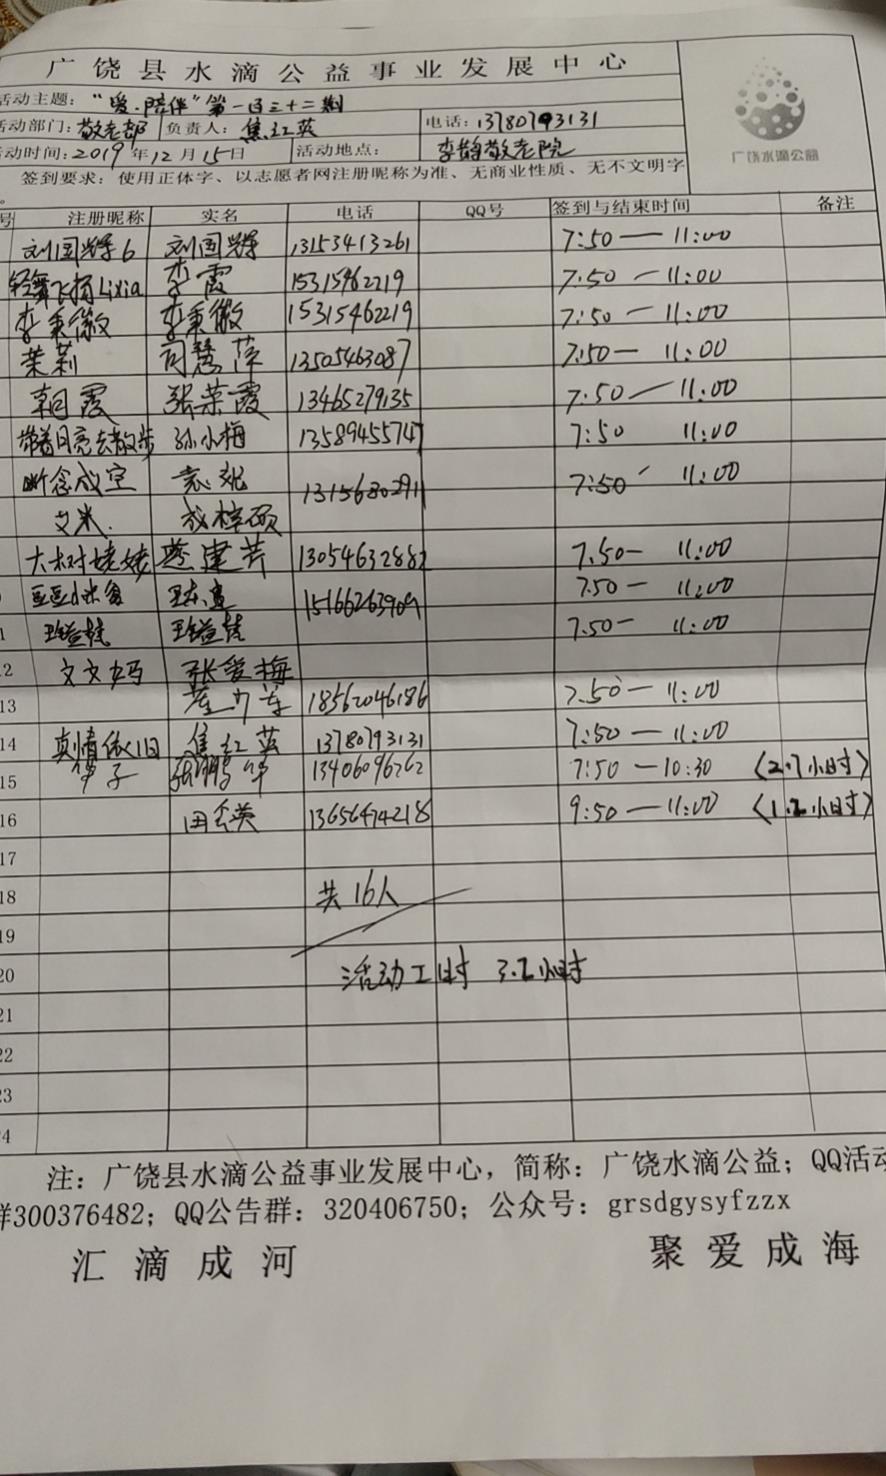 广饶县水滴公益事业发展中心
活动主题:“爱·陪伴”第一百三十二期
活动部门:敬老部 负责人:焦红英 电话:13780793131
活动时间:2019年12月15日 活动地点: 李鹊敬老院
广饶水滴公益
签到要求:使用正体字、以志愿者网注册昵称为准、无商业性质、无不文明字
。
号 注册昵称 实名 电话 QQ号 签到与结束时间 备注
刘国辉6 刘国辉 13153413261 7:50—11:00
轻舞飞扬Lixia 李霞 15315462219 7:50—11:00
李秉徽 李秉徽 15315462219 7:50—11:00
茉莉 司慧萍 13505463087 7:50—11:00
朝霞 张荣霞 13465279135 7:50—11:00
带着月亮去散步 孙小梅 13589455747 7:50 11:00
断念成空 13156802911 7:50 11:00
艾米.
大树姥姥 建芳 13054632882 7.50—11:00
豆豆小米爸 15166263909 7.50—11:00
11 7.50—11:00
12 文文妈 张爱梅
13 18562046186 7.50—11:00
14 真情依旧 焦红英 13780793131 7:50—11:00
15 华子 张鹏华 13406096262 7:50—10:30 (2.7小时)
16 田会英 13656474218 9:50—11:00 (1.2小时)
17
18 共16人
19
20 活动工时 3.2小时
21
22
23
24
注:广饶县水滴公益事业发展中心,简称:广饶水滴公益;QQ活动
群300376482;QQ公告群:320406750;公众号:grsdgysyfzzx
汇滴成河 聚爱成海